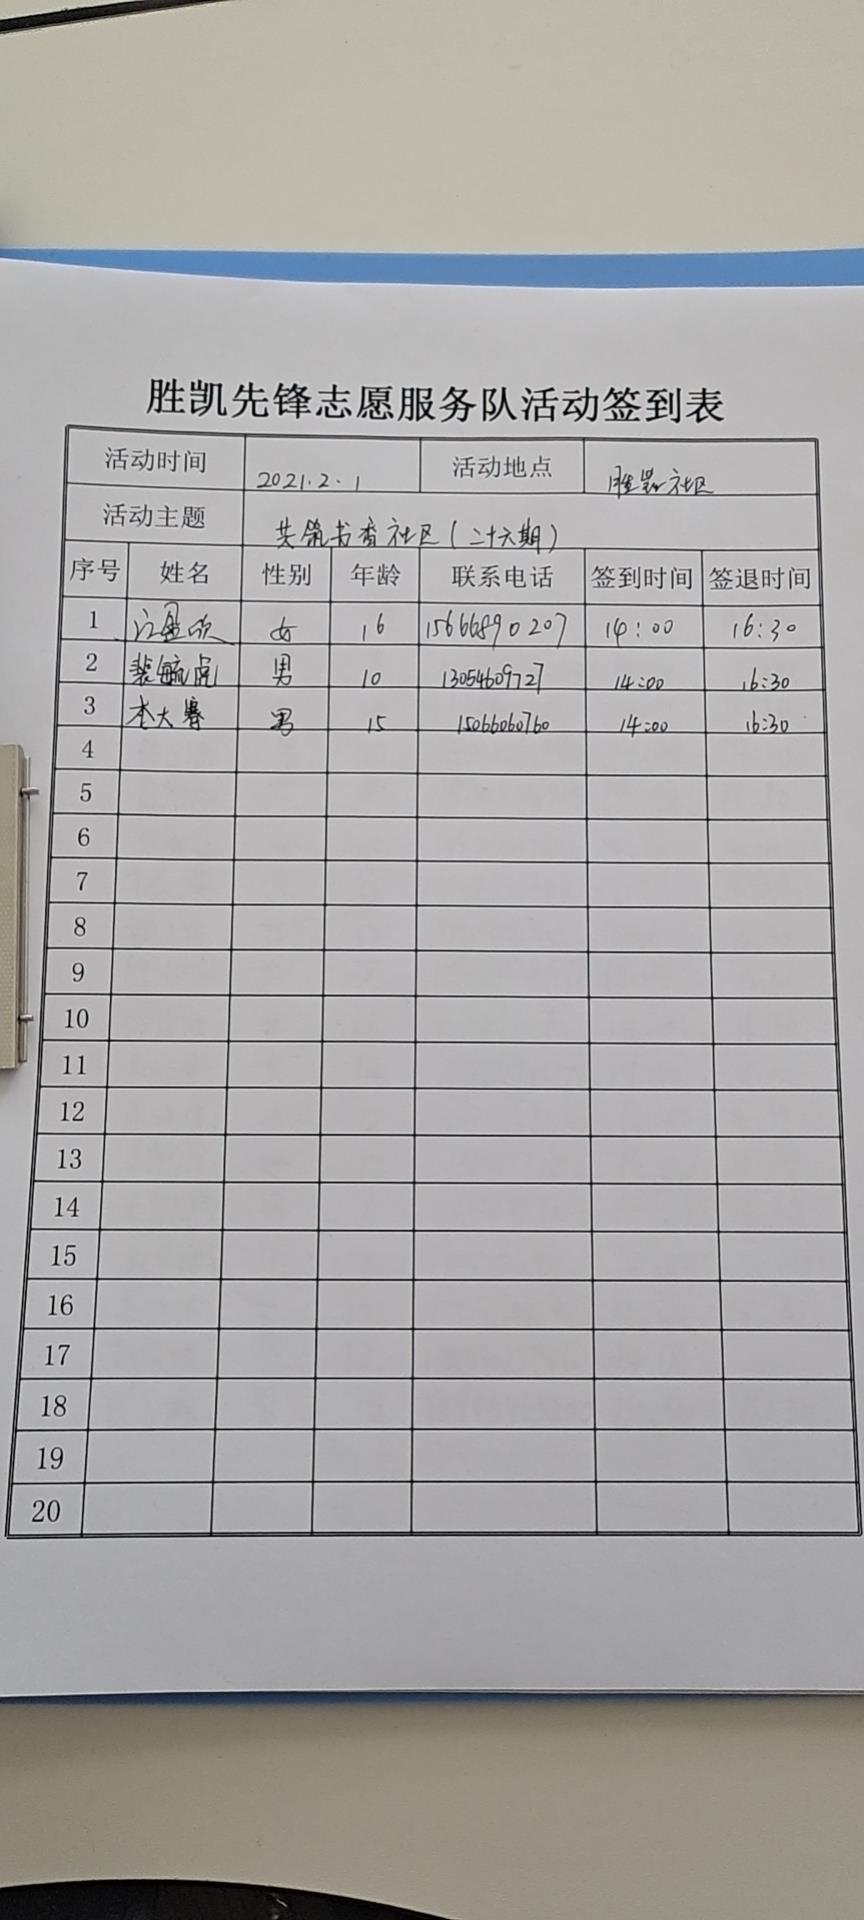 胜凯先锋志愿服务队活动签到表
活动时间 2021.2.1 活动地点 胜凯社区
活动主题 共筑书香社区(二十六期)
序号 姓名 性别 年龄 联系电话 签到时间 签退时间
1 女 16 15666890207 14:00 16:30
2 裴毓虎 男 10 13054609727 14:00 16:30
3 李大赛 男 15 15066060760 14:00 16:30
4
5
6
7
8
9
10
11
12
13
14
15
16
17
18
19
20